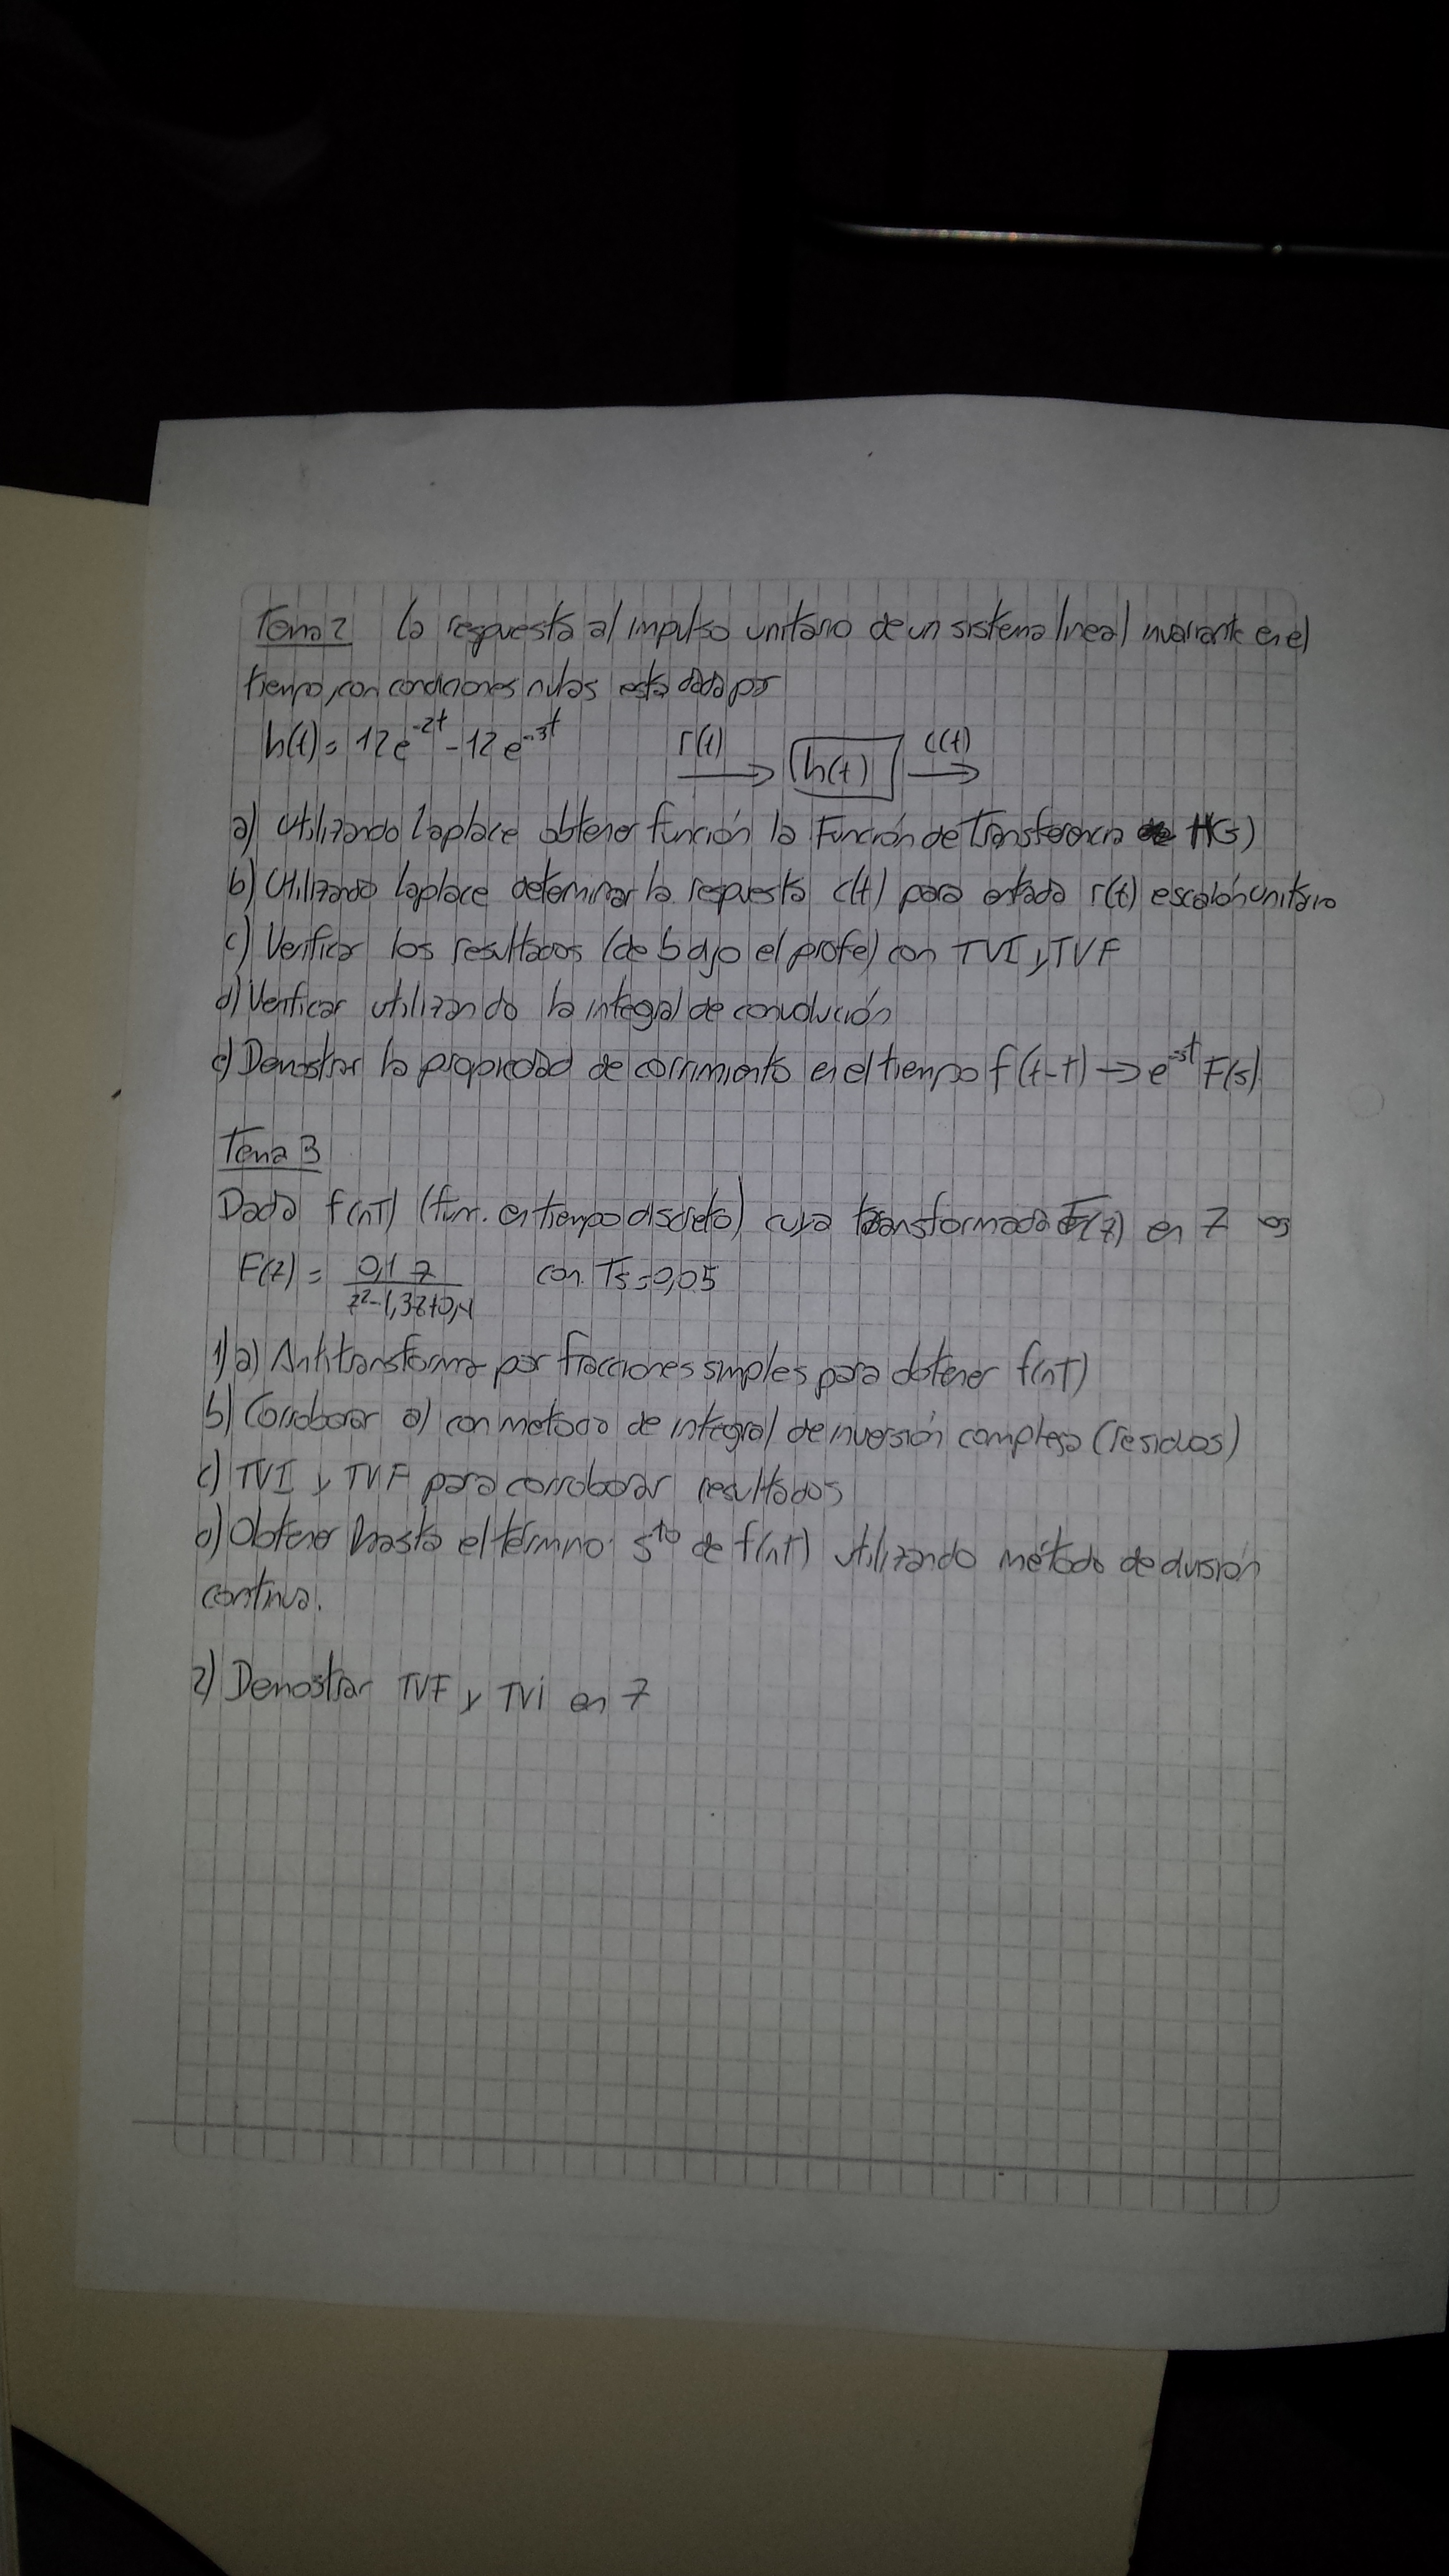 Tema 2 La respuesta al impulso unitario de un sistema lineal invariante en el
tiempo, con condiciones nulas está dada por
h(t) = 12e^-2t - 12e^-3t r(t) h(t) c(t)
a) Utilizando Laplace obtener función la Función de Transferencia H(s)
b) Utilizando Laplace determinar la respuesta c(t) para entrada r(t) escalón unitario
c) Verificar los resultados (de b dijo el profe) con TVI y TVF
d) Verificar utilizando la integral de convolución
e) Demostrar la propiedad de corrimiento en el tiempo f(t-T) → e^-sT F(s)
Tema 3
Dada f(nT) (fun. en tiempo discreto) cuya transformada F(z) en Z es
F(z) = 0,1 z / z²-1,3z+0,4 con Ts=0,05
1) a) Antitransforma por fracciones simples para obtener f(nT)
b) Corroborar a) con metodo de integral de inversión compleja (residuos)
c) TVI y TVF para corroborar resultados
d) Obtener hasta el término 5to de f(nT) utilizando método de división
continua.
2) Demostrar TVF y TVi en Z